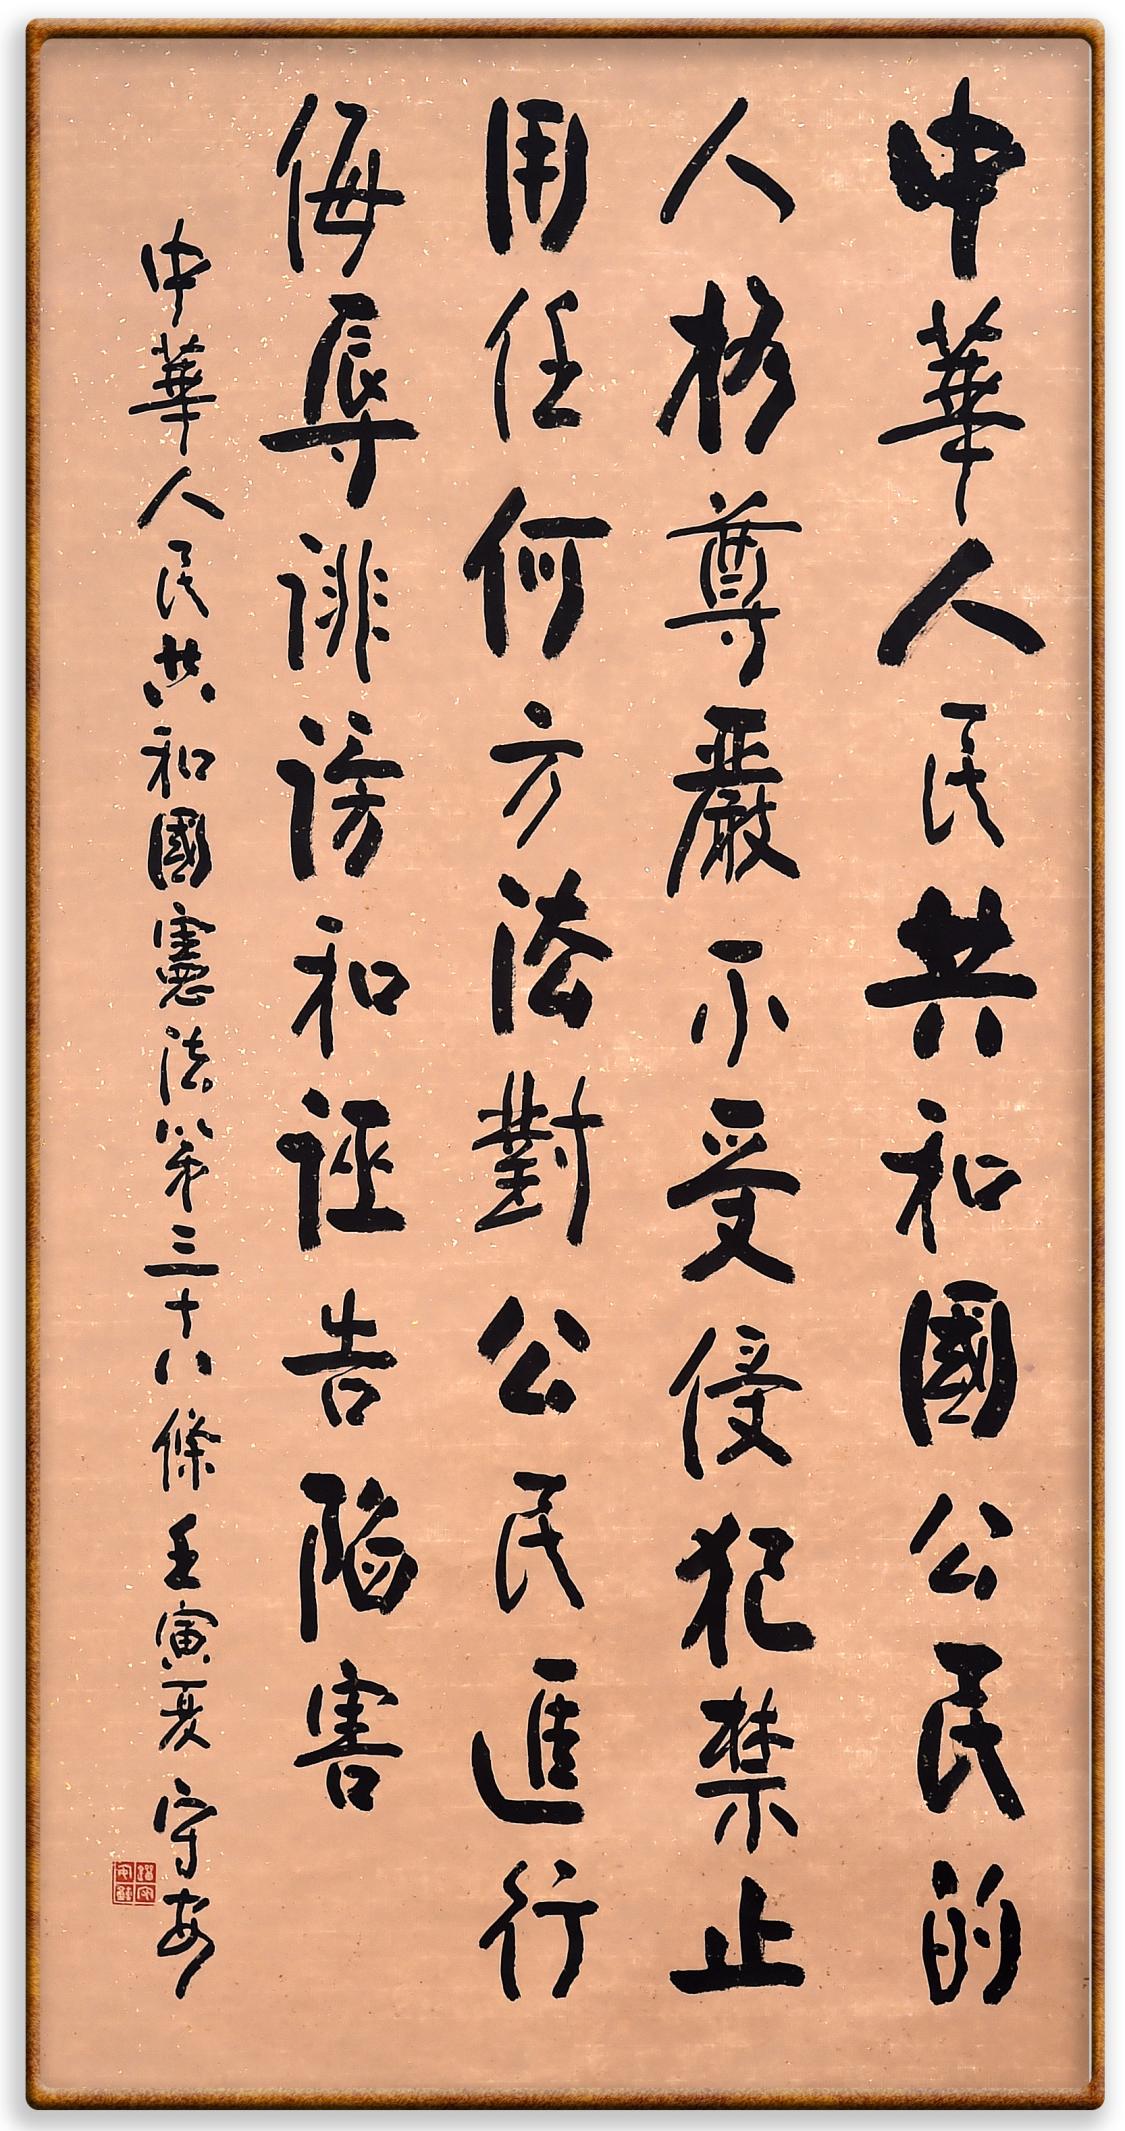 中華人民共和國公民的
人格尊嚴不受侵犯禁止
用任何方法對公民進行
侮辱誹謗和誣告陷害
中華人民共和國憲法第三十八條壬寅夏守安